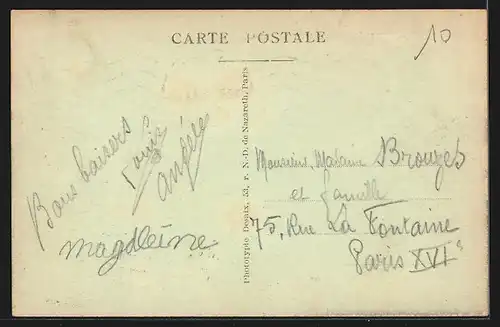 CARTE POSTALE
10
Bons baisers
Louis
angèle
magdleine
Phototypie Desaix, 53, r. N.-D. de Nazareth, Paris
Monsieur, Madame Brouzes
et famille
75, Rue La Fontaine
Paris XVIe